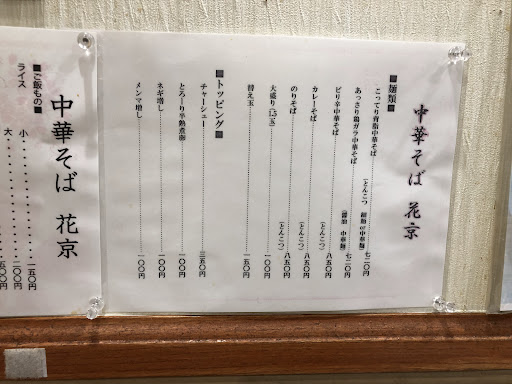 中華そば 花京
■麺類■
こってり背脂中華そば (とんこつ 細麺or中華麺) 七二〇円
あっさり鶏ガラ中華そば (醤油 中華麺) 七二〇円
ピリ辛中華そば (とんこつ) 八五〇円
カレーそば (とんこつ) 八五〇円
のりそば (とんこつ) 八五〇円
大盛り(1.5玉) 一〇〇円
替え玉 一五〇円
■トッピング■
チャーシュー 三五〇円
とろーり半熟煮卵 一〇〇円
ネギ増し 一〇〇円
メンマ増し 一〇〇円
中華そば 花京
■ご飯もの■
ライス
小 一五〇円
大 二〇〇円